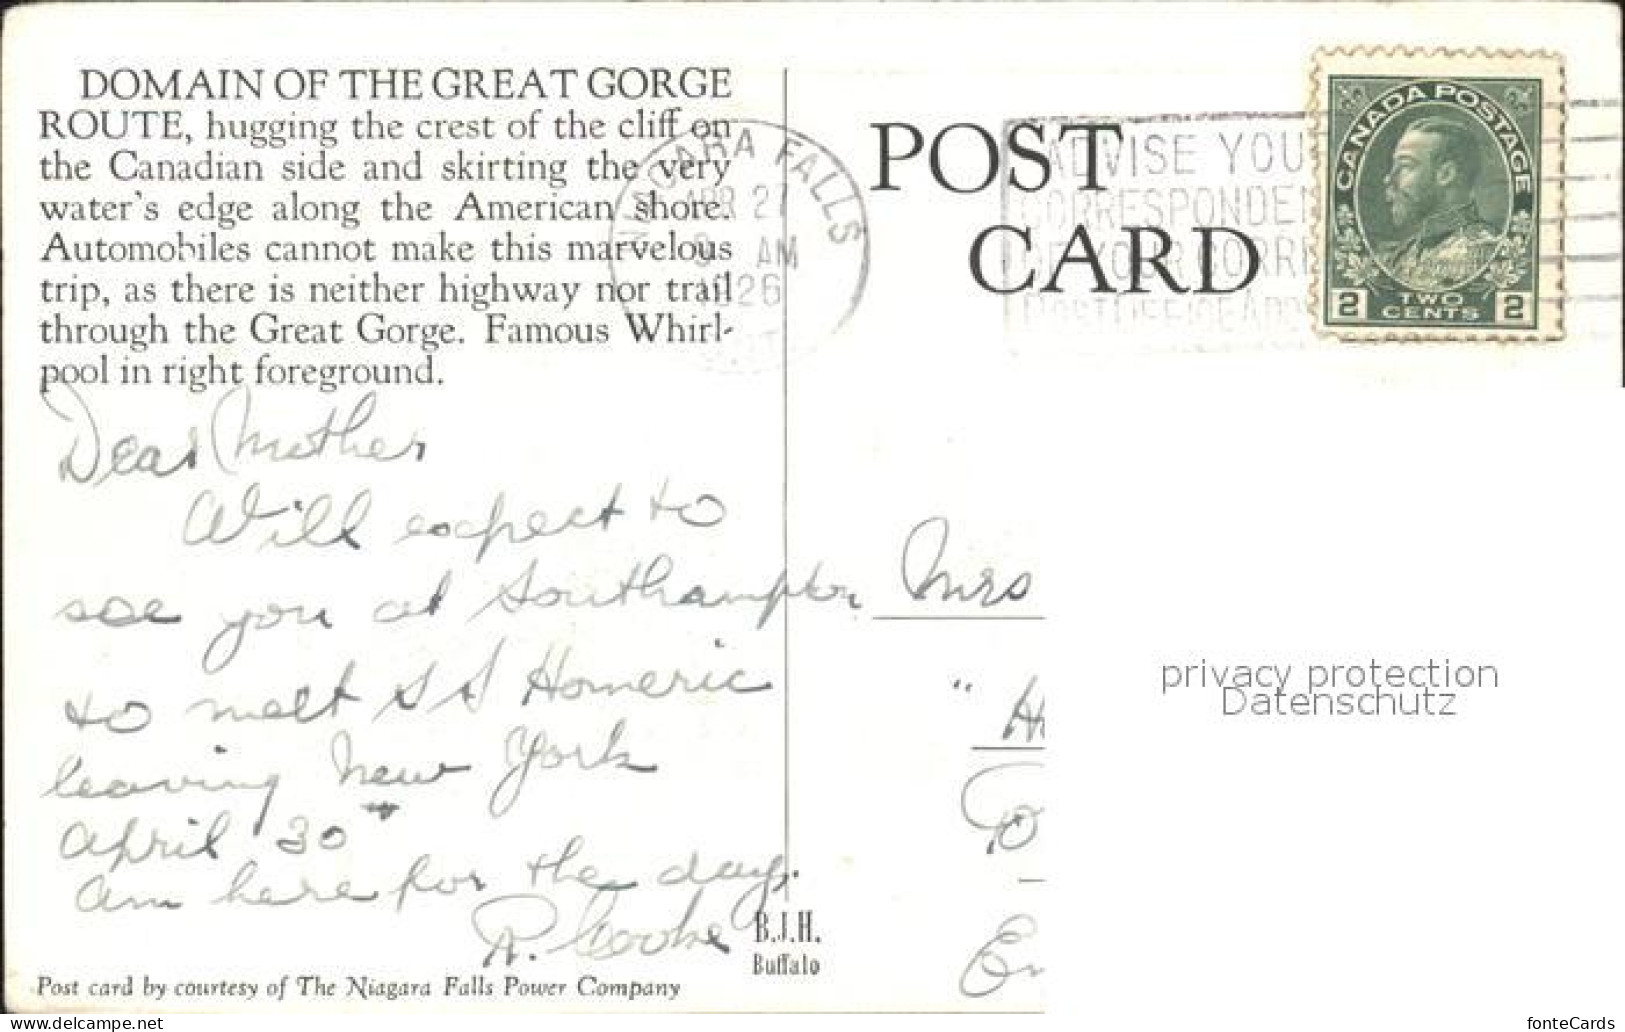 DOMAIN OF THE GREAT GORGE
ROUTE, hugging the crest of the cliff on
the Canadian side and skirting the very
water's edge along the American shore.
Automobiles cannot make this marvelous
trip, as there is neither highway nor trail
through the Great Gorge. Famous Whirl-
pool in right foreground.
NIAGARA FALLS
APR 27
9 AM
1926
POST
CARD
ADVISE YOU
CORRESPONDEN
OF YOUR CORRE
POST OFFICE ADD
CANADA POSTAGE
2 TWO CENTS 2
Dear Mother
Will expect to
see you at Southampton
to meet S S Homeric
leaving New York
April 30
Am here for the day.
R. Cooke
Mrs
" H
Co
En
privacy protection
Datenschutz
B.J.H.
Buffalo
Post card by courtesy of The Niagara Falls Power Company
www.delcampe.net
fonteCards